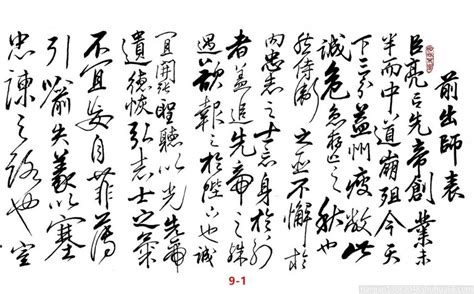 前出師表
臣亮言先帝創業未
半而中道崩殂今天
下三分益州疲敝此
誠危急存亡之秋也
然侍衛之臣不懈於
内忠志之士忘身於外
者蓋追先帝之殊
遇欲報之於陛下也誠
宜開張聖聽以光先帝
遺德恢弘志士之氣
不宜妄自菲薄
引喻失義以塞
忠諫之路也宮
9-1